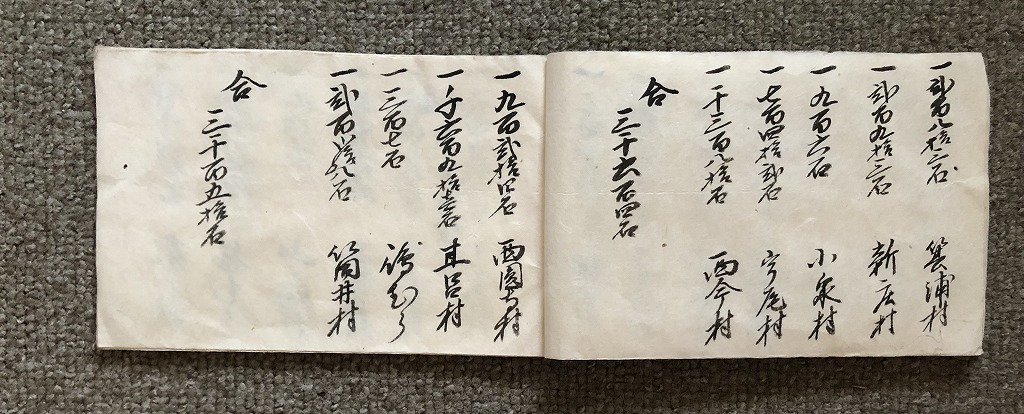 一弐百八拾三石 箕浦村
一弐百九拾三石 新庄村
一九百六石 小泉村
一七百四拾弐石 宇尾村
一千三百八拾石 西今村
合
三千六百四石
一九百弐拾四石 西円寺村
一千六百九拾壱石 甘呂村
一三百七石
一弐百 石 筒井村
合
三千百五拾石